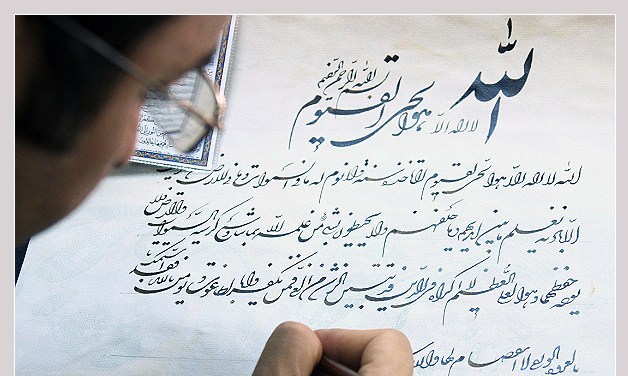 الله
بسم الله الرحمن الرحیم
لا اله الا هو الحی القیوم
الله لا اله الا هو الحی القیوم لا تاخذه سنة ولا نوم له ما فی السموات وما فی الارض
الا باذنه یعلم ما بین ایدیهم وما خلفهم ولا یحیطون بشیء من علمه الا بما شاء وسع کرسیه السموات والارض ولا
یوده حفظهما وهو العلی العظیم لا اکراه فی الدین قد تبین الرشد من الغی فمن یکفر بالطاغوت ویومن بالله فقد استمسک
بالعروة الوثقی لا انفصام لها والله